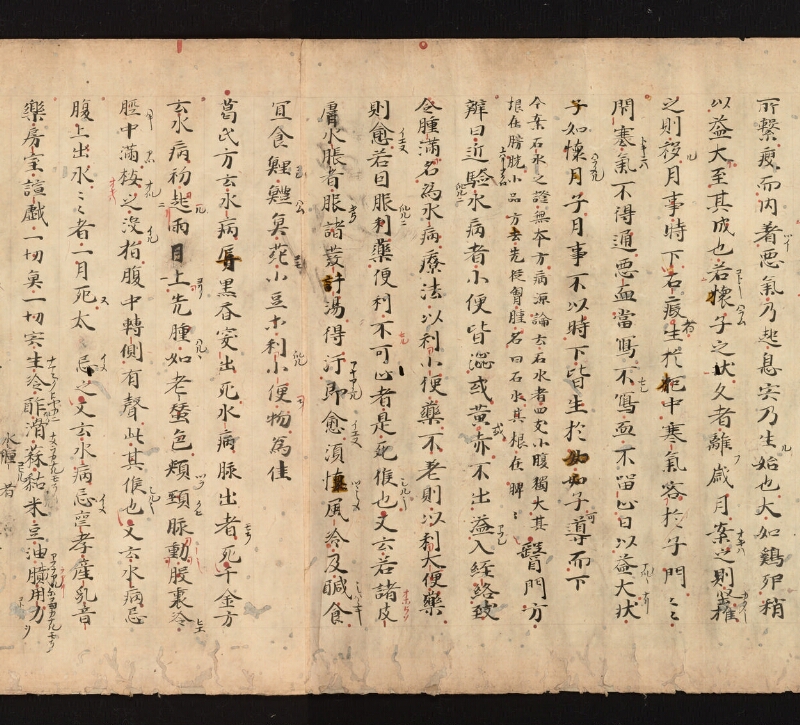 所繫瘕而内著惡氣乃起息宍乃生始也大如鷄卵稍
以益大至其成也若懷子之狀久者離歳月案之則堅推
之則移月事時下石瘕生於胞中寒氣客於子門〻〻
閇塞氣不得通惡血當寫不寫血不留止日以益大状
子如懷月子月事不以時下皆生於女子可導而下
今案石水之證無本方病源論云石水者四支小腹獨大其
根在膀胱小品方云先從胷腫名曰石水其根在脾〻
醫門方
辨曰近驗水病者小便皆澁或黄赤不出益入経絡致
令腫満名為水病療法以利小便藥不老則以利大便藥
則愈若曰服利藥便利不可止者是死候也又云若諸皮
膚水脹者服諸發汗湯得汗即愈湏慎風冷及鹹食
宜食鯉鱧魚菀小豆木利小便物為佳
葛氏方云水病唇黒脣突出死水病脉出者死千金方
云水病初起兩目上先腫如老蚕色頰頸脉動股裏冷
脛中滿桉之没指腹中轉側有聲此其候也又云水病忌
腹上出水〻者一月死太忌之又云水病忌望孝産乳音
樂房室諠戯一切魚一切宍生冷酢滑蒜黏米豆油膩用力